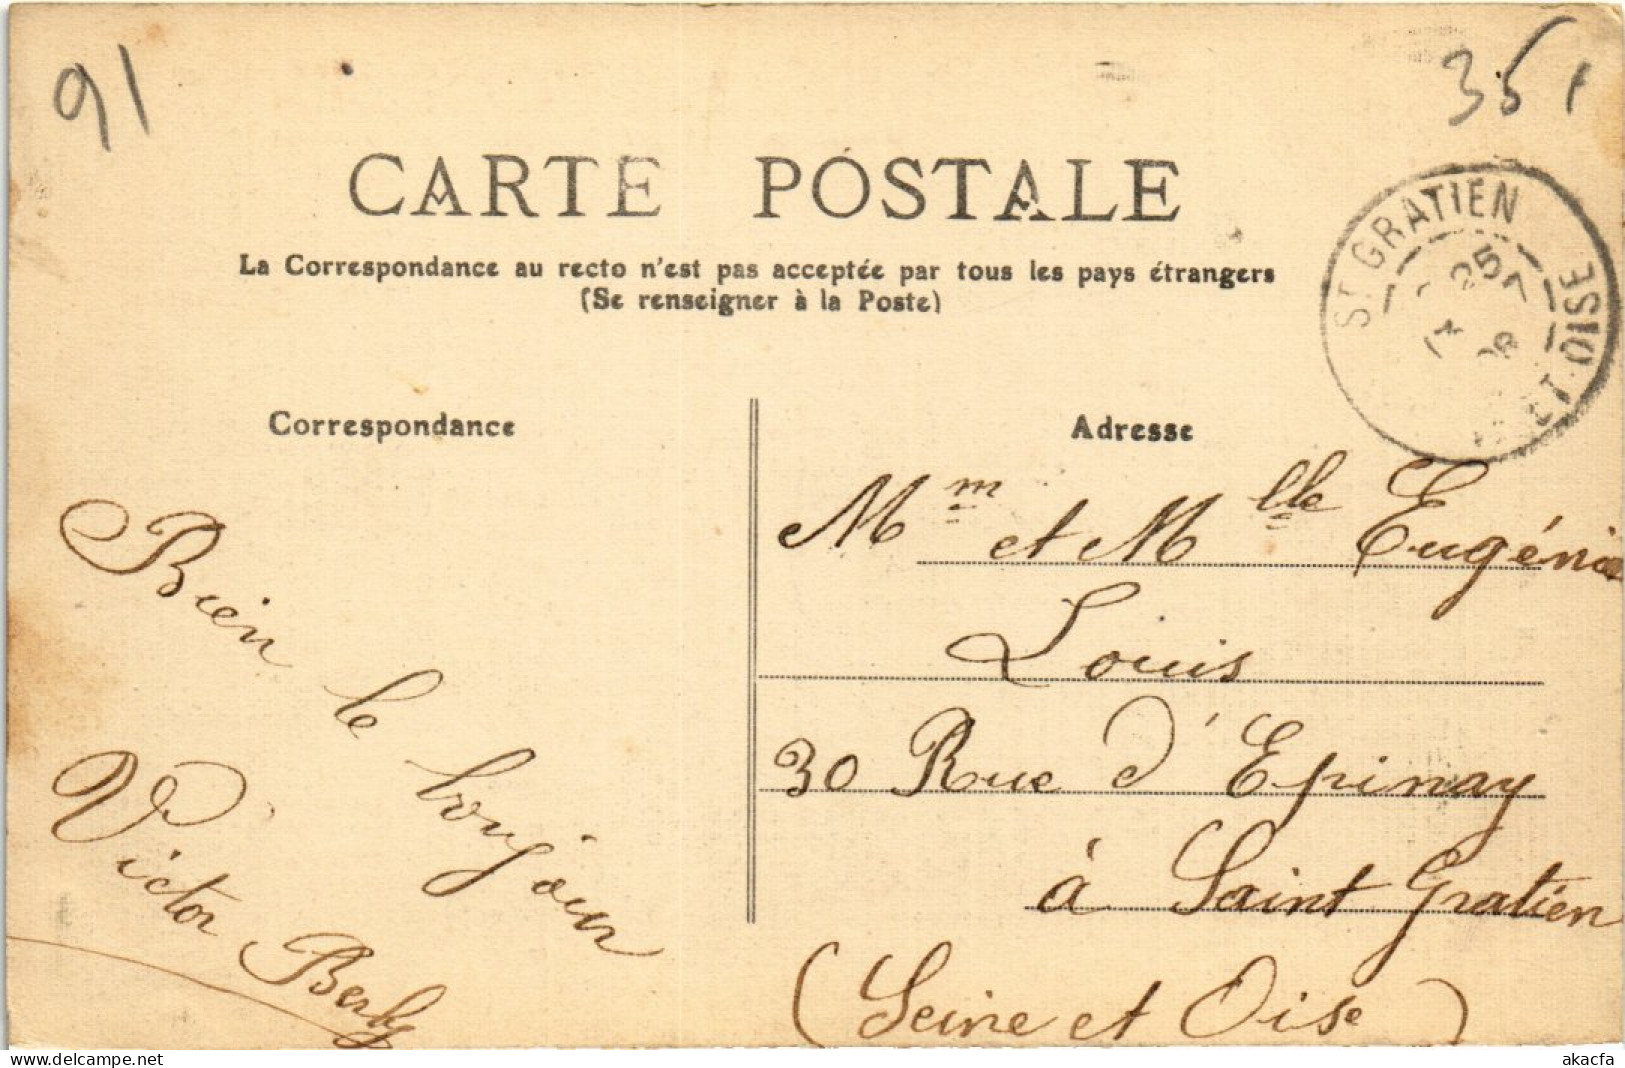 91
35
CARTE POSTALE
La Correspondance au recto n'est pas acceptée par tous les pays étrangers
(Se renseigner à la Poste)
ST GRATIEN
25
ET-OISE
Correspondance
Adresse
Bien le bonjour
Victor Berly
Mm et Mlle Eugénie
Louis
30 Rue d'Epinay
à Saint Gratien
(Seine et Oise)
akacfa